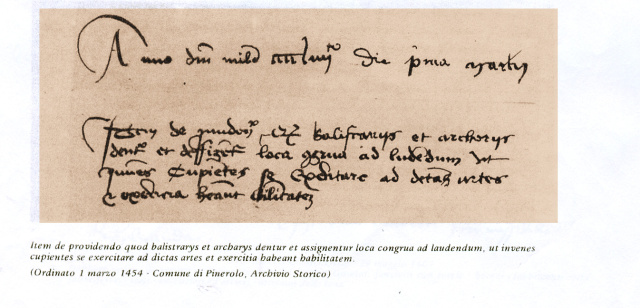 Anno dni mild cccc liiij to die prima martij
Item de providendo balistrarijs et archerijs
dent et assignet loca 9grua ad ludendum ut
iuvenes Cupietes se Exercitare ad detas artes
exercicia heant abilitatez
Item de providendo quod balistrarys et archarys dentur et assignentur loca congrua ad laudendum, ut invenes
cupientes se exercitare ad dictas artes et exercitia habeant habilitatem.
(Ordinato 1 marzo 1454 - Comune di Pinerolo, Archivio Storico)